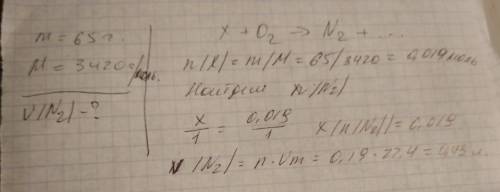 m = 65 г.
M = 3420 г/моль.
V(N2) - ?
x + O2 → N2 + ...
n(x) = m/M = 65/3420 = 0,019 моль
Найдем n(N2)
x/1 = 0,019/1 x(n(N2)) = 0,019
V(N2) = n · Vm = 0,19 · 22,4 = 4,93 л.